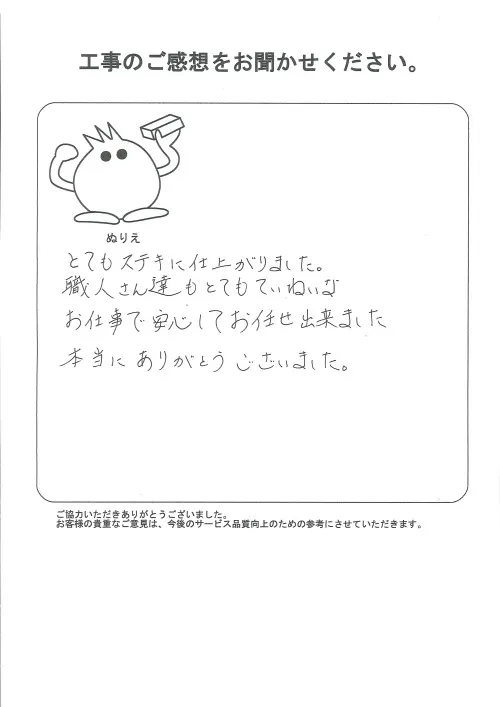 工事のご感想をお聞かせください。
ぬりえ
とてもステキに仕上がりました。
職人さん達もとてもていねいな
お仕事で安心してお任せ出来ました
本当にありがとうございました。
ご協力いただきありがとうございました。
お客様の貴重なご意見は、今後のサービス品質向上のための参考にさせていただきます。